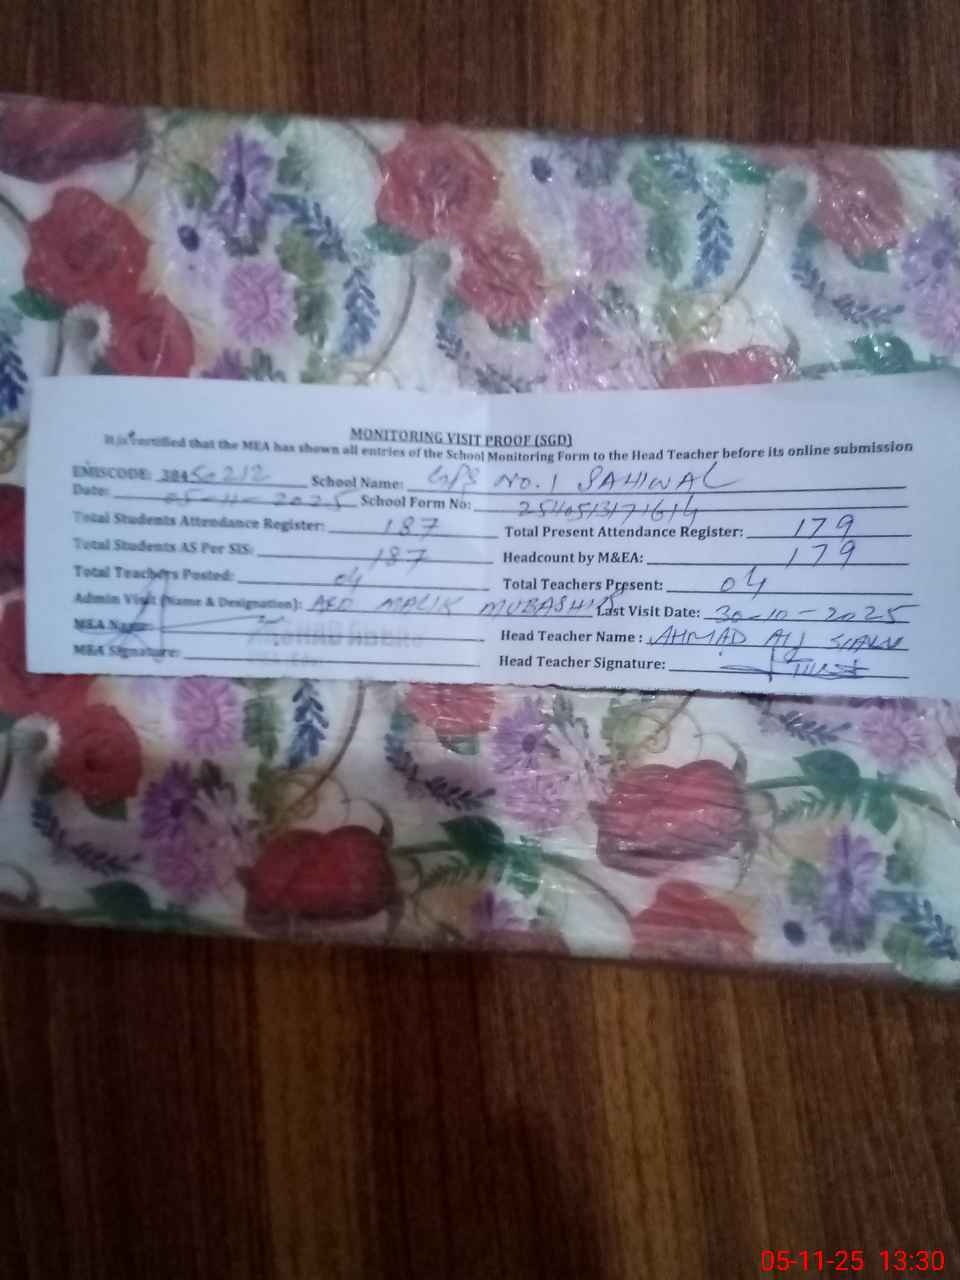 MONITORING VISIT PROOF (SGD)
It is certified that the MEA has shown all entries of the School Monitoring Form to the Head Teacher before its online submission
EMISCODE: 38450212 School Name: G/P/S No. 1 SAHIWAL
Date: 05-11-2025 School Form No:
Total Students Attendance Register: 187 Total Present Attendance Register: 179
Total Students AS Per SIS: 187 Headcount by M&EA: 179
Total Teachers Posted: 04 Total Teachers Present: 04
Admin Visit (Name & Designation): AEO MALIK MUBASHIR Last Visit Date: 30-10-2025
MEA Name: Head Teacher Name : AHMAD ALI
MEA Signature: Head Teacher Signature:
05-11-25 13:30